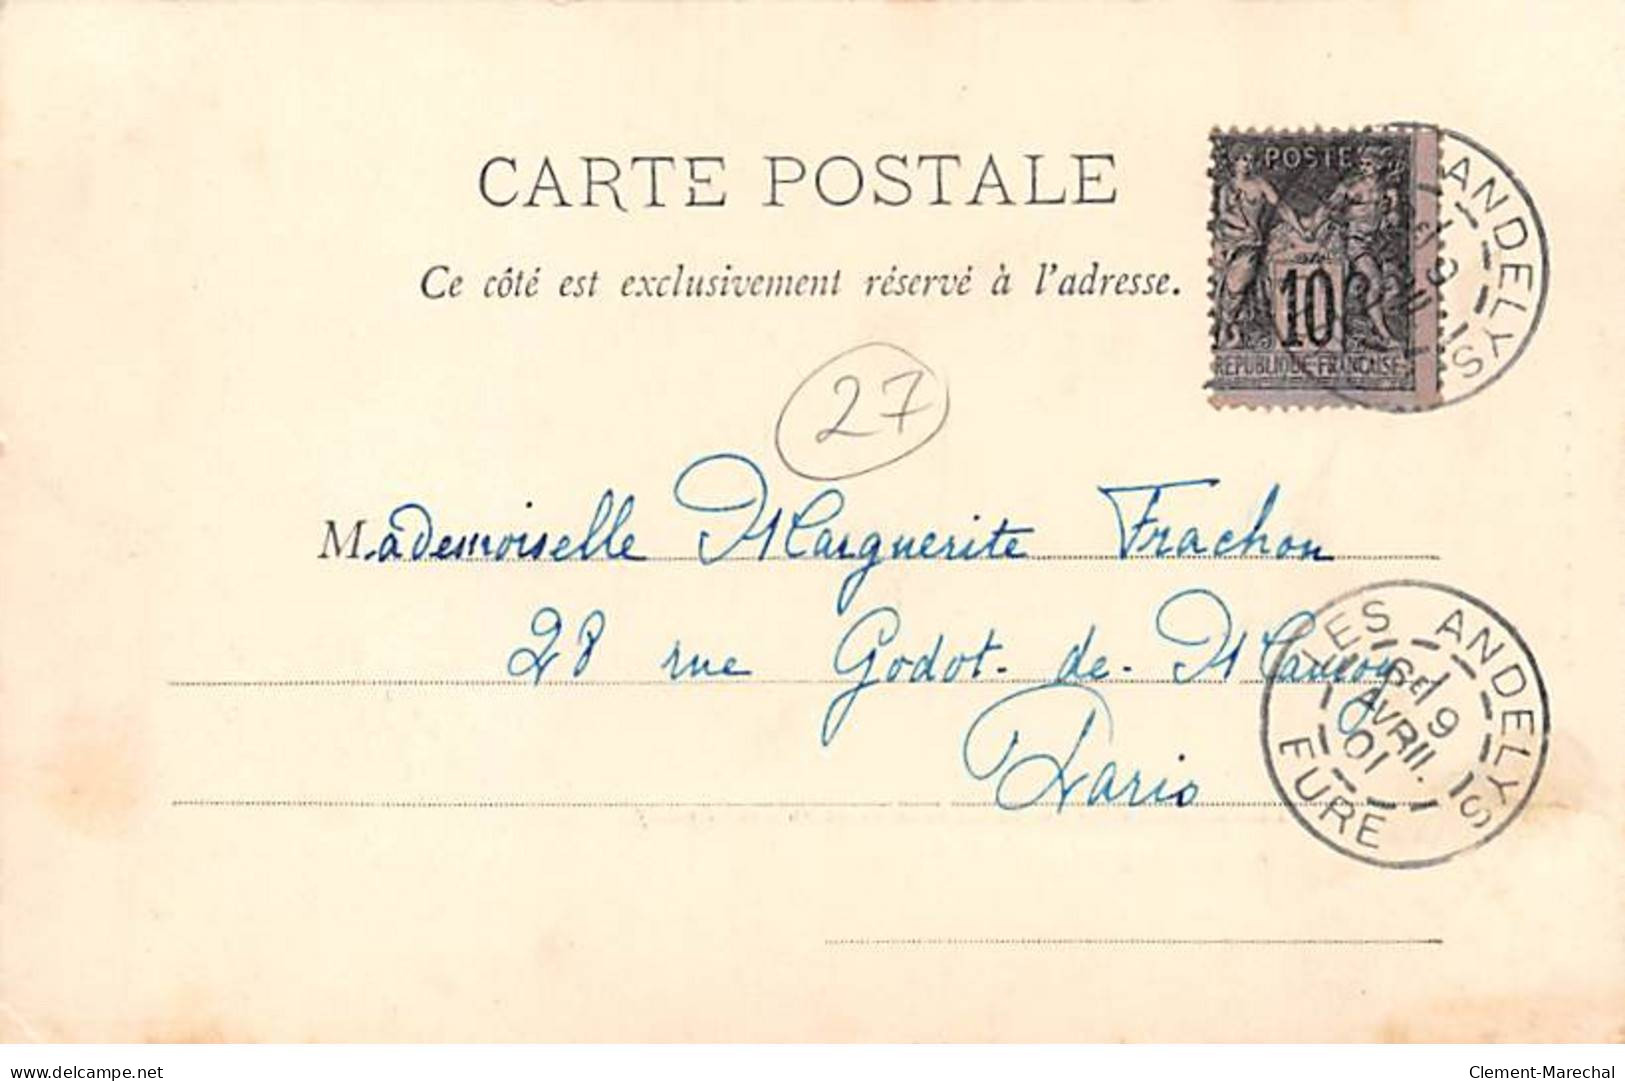 CARTE POSTALE
Ce côté est exclusivement réservé à l'adresse.
POSTE
10
REPUBLIQUE FRANÇAISE
ANDELYS
27
Mademoiselle Marguerite Frachon
28 rue Godot-de-Mauroy
Paris
LES ANDELYS
6E 19
AVRIL
01
EURE
www.delcampe.net
Clement-Marechal